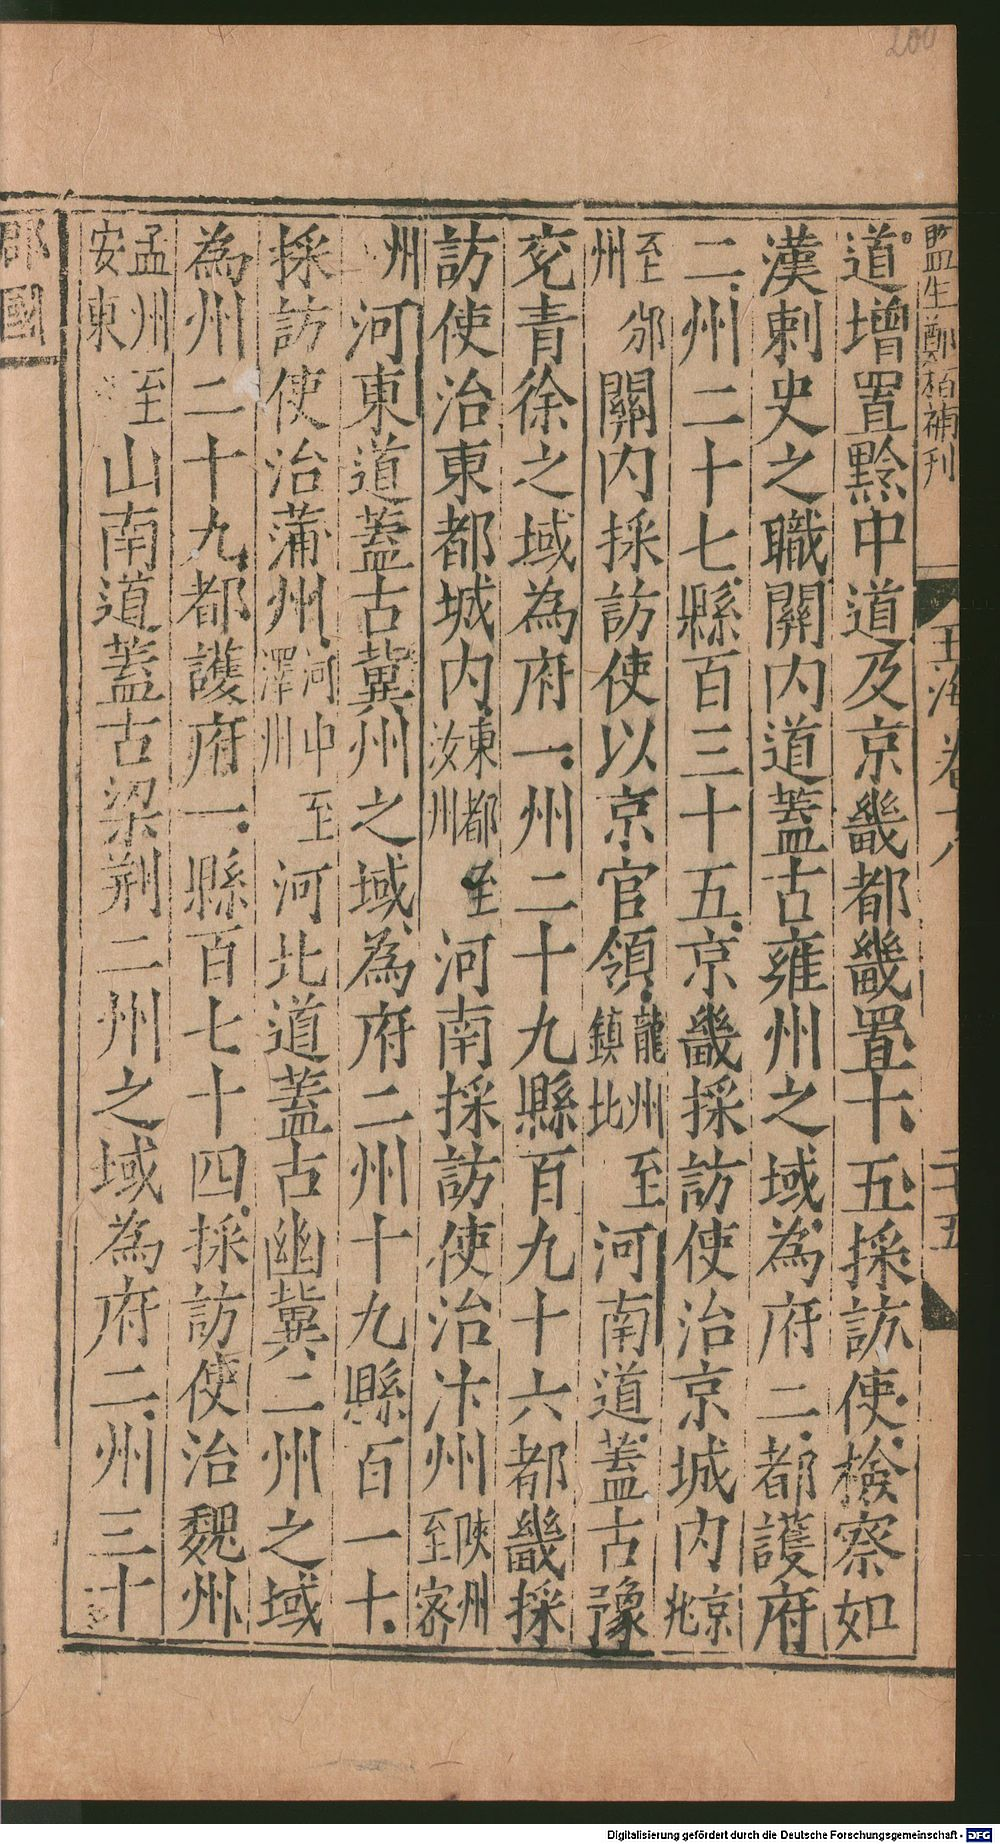 200
監生鄭栢補刊
玉海卷十八 二十五
道增置黔中道及京畿都畿置十五採訪使檢察如
漢刺史之職關内道蓋古雍州之域為府二都護府
二州二十七縣百三十五京畿採訪使治京城内京兆
至邠州關内採訪使以京官領隴州至鎮北河南道蓋古豫
兗青徐之域為府一州二十九縣百九十六都畿採
訪使治東都城内東都至汝州河南採訪使治汴州陝州至密
州河東道蓋古冀州之域為府二州十九縣百一十
採訪使治蒲州河中至澤州河北道蓋古幽冀二州之域
為州二十九都護府一縣百七十四採訪使治魏州
孟州至安東山南道蓋古梁荆二州之域為府二州三十
郡國
Digitalisierung gefördert durch die Deutsche Forschungsgemeinschaft - DFG